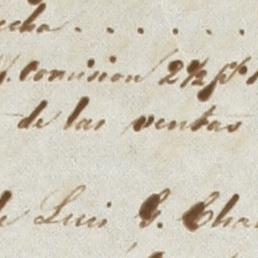 echo . . . . . .
comision 2½ p%
de las ventas
de Luis G. Cha